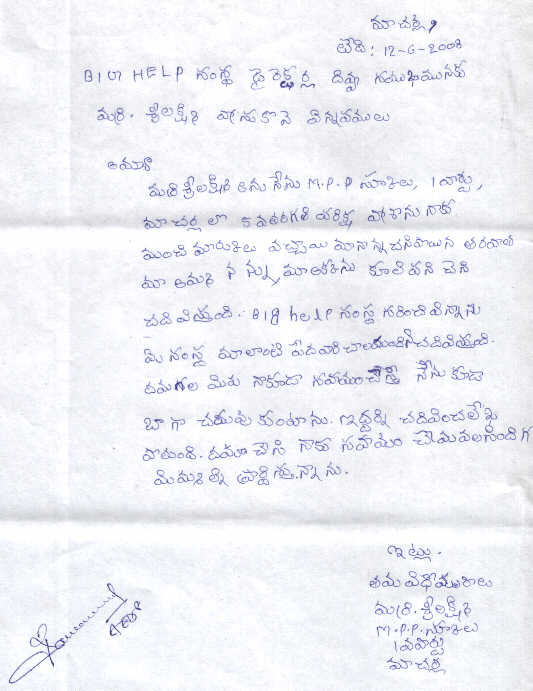 మాచర్ల,
తేది: 12-6-2008
BIG HELP సంస్థ డైరెక్టర్ల దివ్య సముఖమునకు
మర్రి. శ్రీలక్ష్మి వ్రాసుకొనె విన్నపములు
అమ్మా
మర్రి శ్రీలక్ష్మి అను నేను M.P.P స్కూలు, 1 వార్డు,
మాచర్ల లో 5 వతరగతి పరీక్ష వ్రాశాను నాకు
మంచి మార్కులు వచ్చాయి మా నాన్న చనిపోయిన తరవాత
మా అమ్మ నన్ను, మా అక్కను కూలి పని చేసి
చదివిస్తుంది. Big help సంస్థ గురించి విన్నాను
మీ సంస్థ మాలాంటి పేదవారి చాలామందిని చదివిస్తుంది.
దయగల మీరు నాకూడా సహాయం చేస్తే నేను కూడా
బాగా చదువు కుంటాను. ఇద్దర్ని చదివించలేక
పోతుంది. దయ చేసి నాకు సహాయం చేయవలసిందిగ
మిమ్మల్ని ప్రార్థిస్తున్నాను.
ఇట్లు.
తమ విధేయురాలు
మర్రి. శ్రీలక్ష్మి
M.P.P. స్కూలు
1 వ వార్డు
మాచర్ల